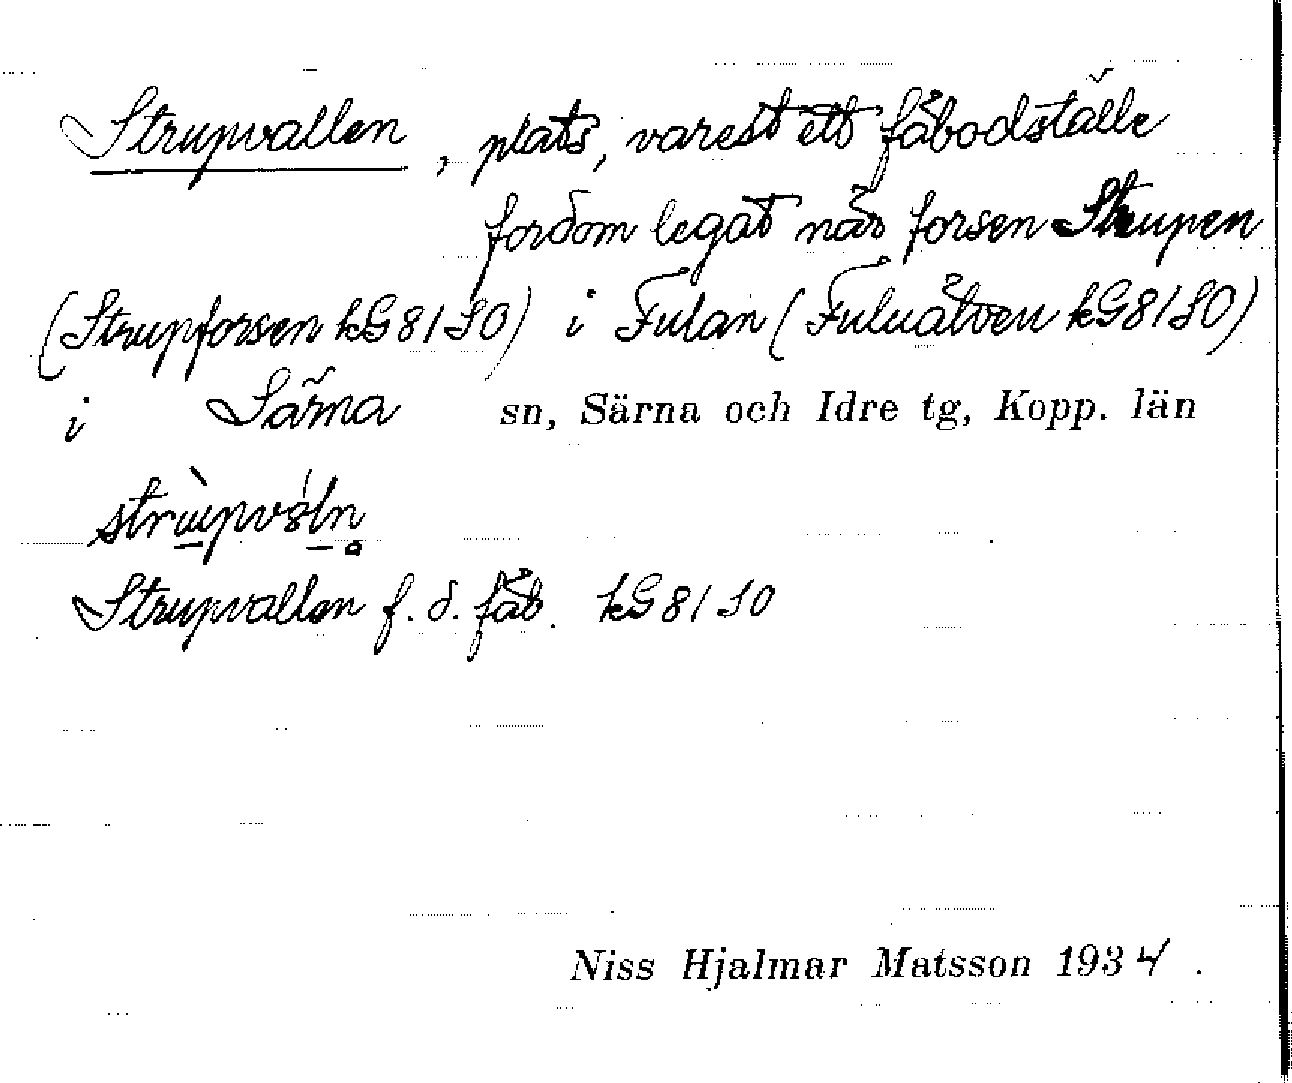 Strupvallen, plats, varest ett fäbodställe
fordom legat när forsen Strupen
(Strupforsen kG 81 SO) i Fulan (Fuluälven kG 81 SO)
i Särna sn, Särna och Idre tg, Kopp. län
Strupvallen f. d. fäb. kG 81 SO
Niss Hjalmar Matsson 1934.